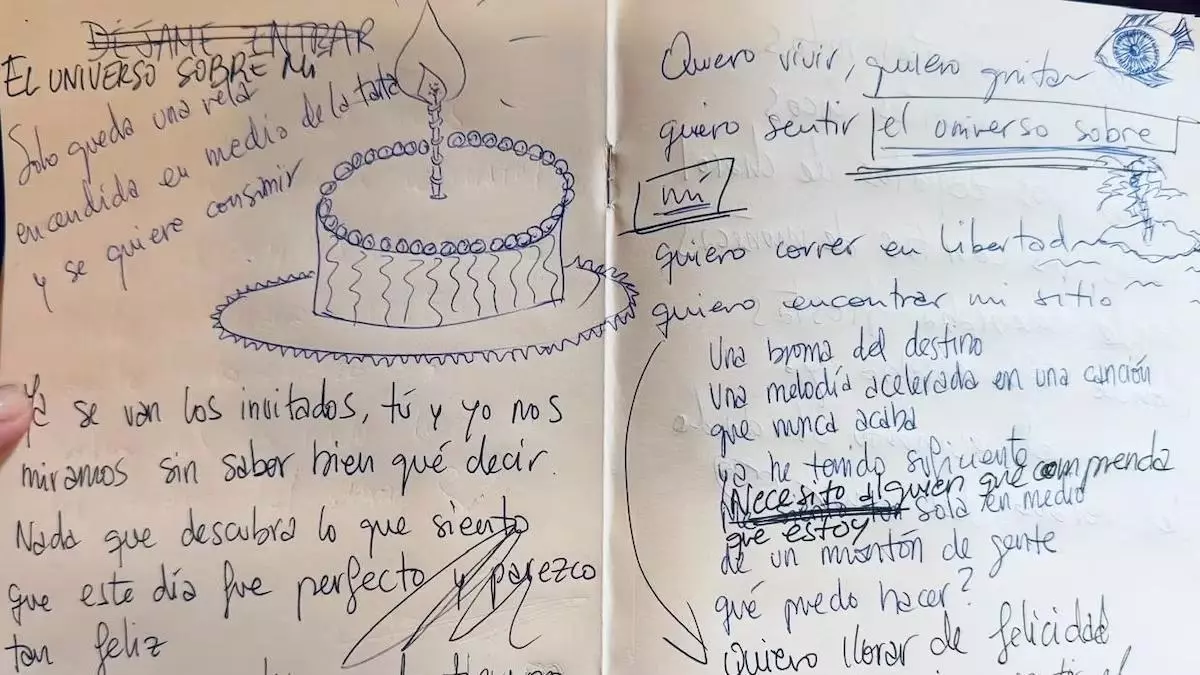 DÉJAME ENTRAR
EL UNIVERSO SOBRE MÍ
Solo queda una vela
encendida en medio de la tarta
y se quiere consumir
Ya se van los invitados, tú y yo nos
miramos sin saber bien qué decir.
Nada que descubra lo que siento
que este día fue perfecto y parezco
tan feliz
Quiero vivir, quiero gritar
quiero sentir el universo sobre
mí
quiero correr en libertad
quiero encontrar mi sitio
Una broma del destino
Una melodía acelerada en una canción
que nunca acaba
ya he tenido suficiente
Necesito alguien que comprenda
que estoy sola en medio
de un montón de gente
qué puedo hacer?
Quiero llorar de felicidad